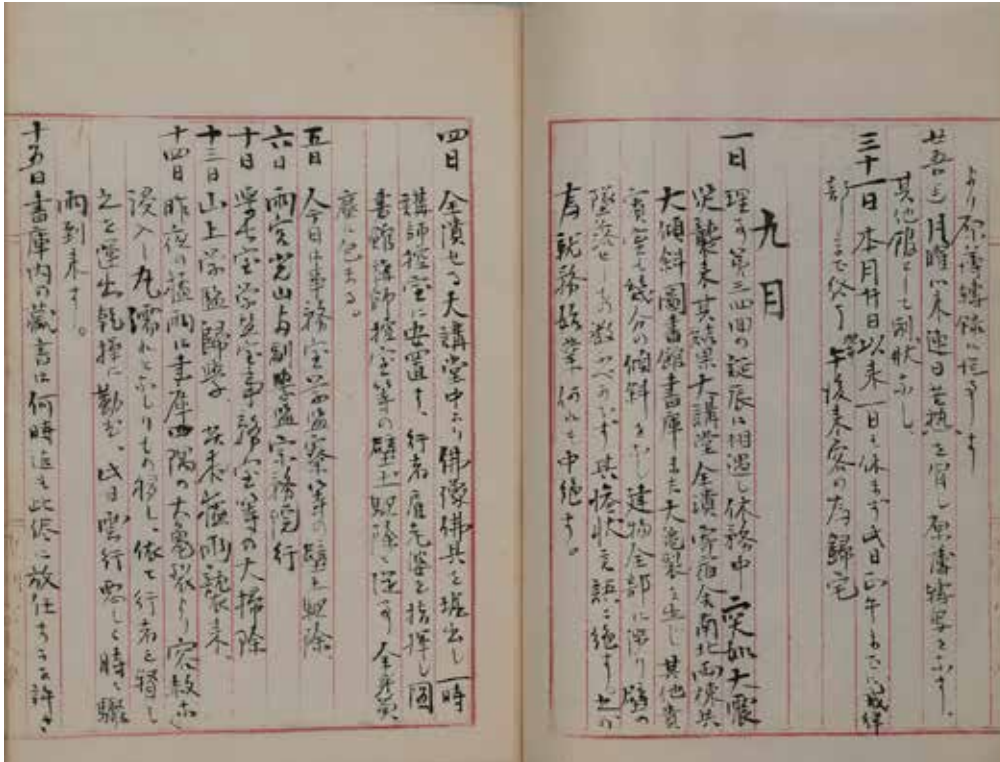 より原簿謄録に従事す
廿五日 月曜以来連日苦熱を冒し原簿謄写をなす。
其他館として別状なし。
三十一日 本月廿日以来一日も休まず此日正午までに戒律
部まで終る 午後来客の為帰宅
九月
一日 理す第三四回の誕辰に相遇し休務中 突如大震
災襲来其結果大講堂全潰寄宿舎南北両棟共
大傾斜 図書館書庫また大亀裂を生し其他貴
賓室も幾分の傾斜をなし 建物全部に渉り壁の
墜落せしもの数ふべからず 其惨状言語に絶す。之が
為就務始業何れも中絶す。
四日 全潰せる大講堂中より佛像佛具を堀出し一時
講師控室に安置す、行者雇先婆を指揮し図
書館講師控室等の壁土取除に従事す 全身炭
塵に包まる。
五日 今日は事務室学監寮等の壁土取除
六日 雨宮光山両副学監宗務院行
十日 学長室学生室事務室等の大掃除
十三日 山上学監帰学 昼来極雨襲来、
十四日 昨夜の極雨に書庫四隅の大亀裂より容赦なく
浸入し丸濡れとなりしもの夥し、依て行者を督し
之を運出乾操に勤む、此日雲行悪しく時々驟
雨到来す。
十五日 書庫内の蔵書は何時迄も此侭に放任するを許さ